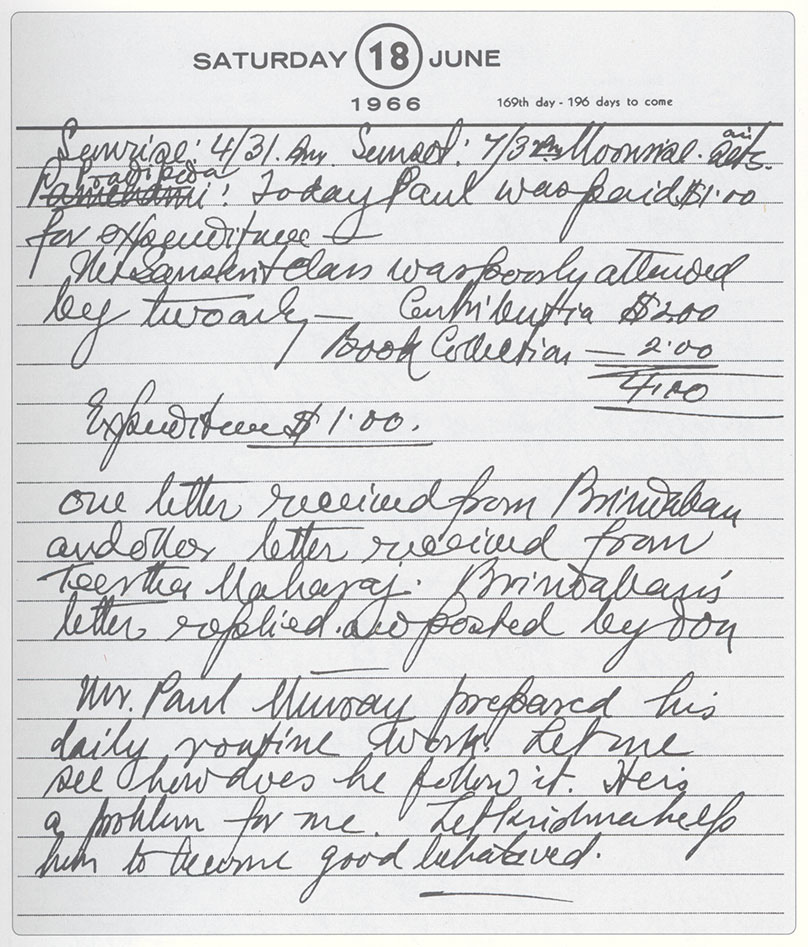 SATURDAY 18 JUNE
1966
169th day - 196 days to come
Sunrise: 4/31. Am. Sunset: 7/32 Pm Moonrise.
Pratipada: Today Paul was paid $1.00
for expenditure —
The Sanskrit Class was poorly attended
by two only — Contribution $2.00
Book Collection — 2.00
4.00
Expenditure $1.00.
one letter received from Brindaban
and other letter received from
Teertha Maharaj. Brindaban's
letter replied and posted by don
Mr. Paul Murray prepared his
daily routine work. Let me
see how does he follow it. He is
a problem for me. Let Krishna help
him to become good behatived.